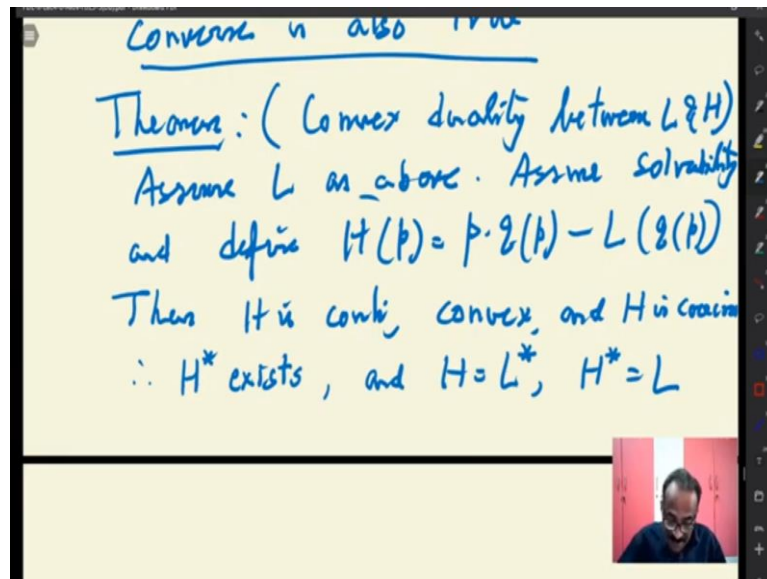 Converse is also true
Theorem: (Convex duality between L & H)
Assume L as above. Assume solvability
and define H(p) = p·q(p) − L(q(p))
Then H is conti, convex, and H is coerciv
∴ H* exists, and H = L*, H* = L